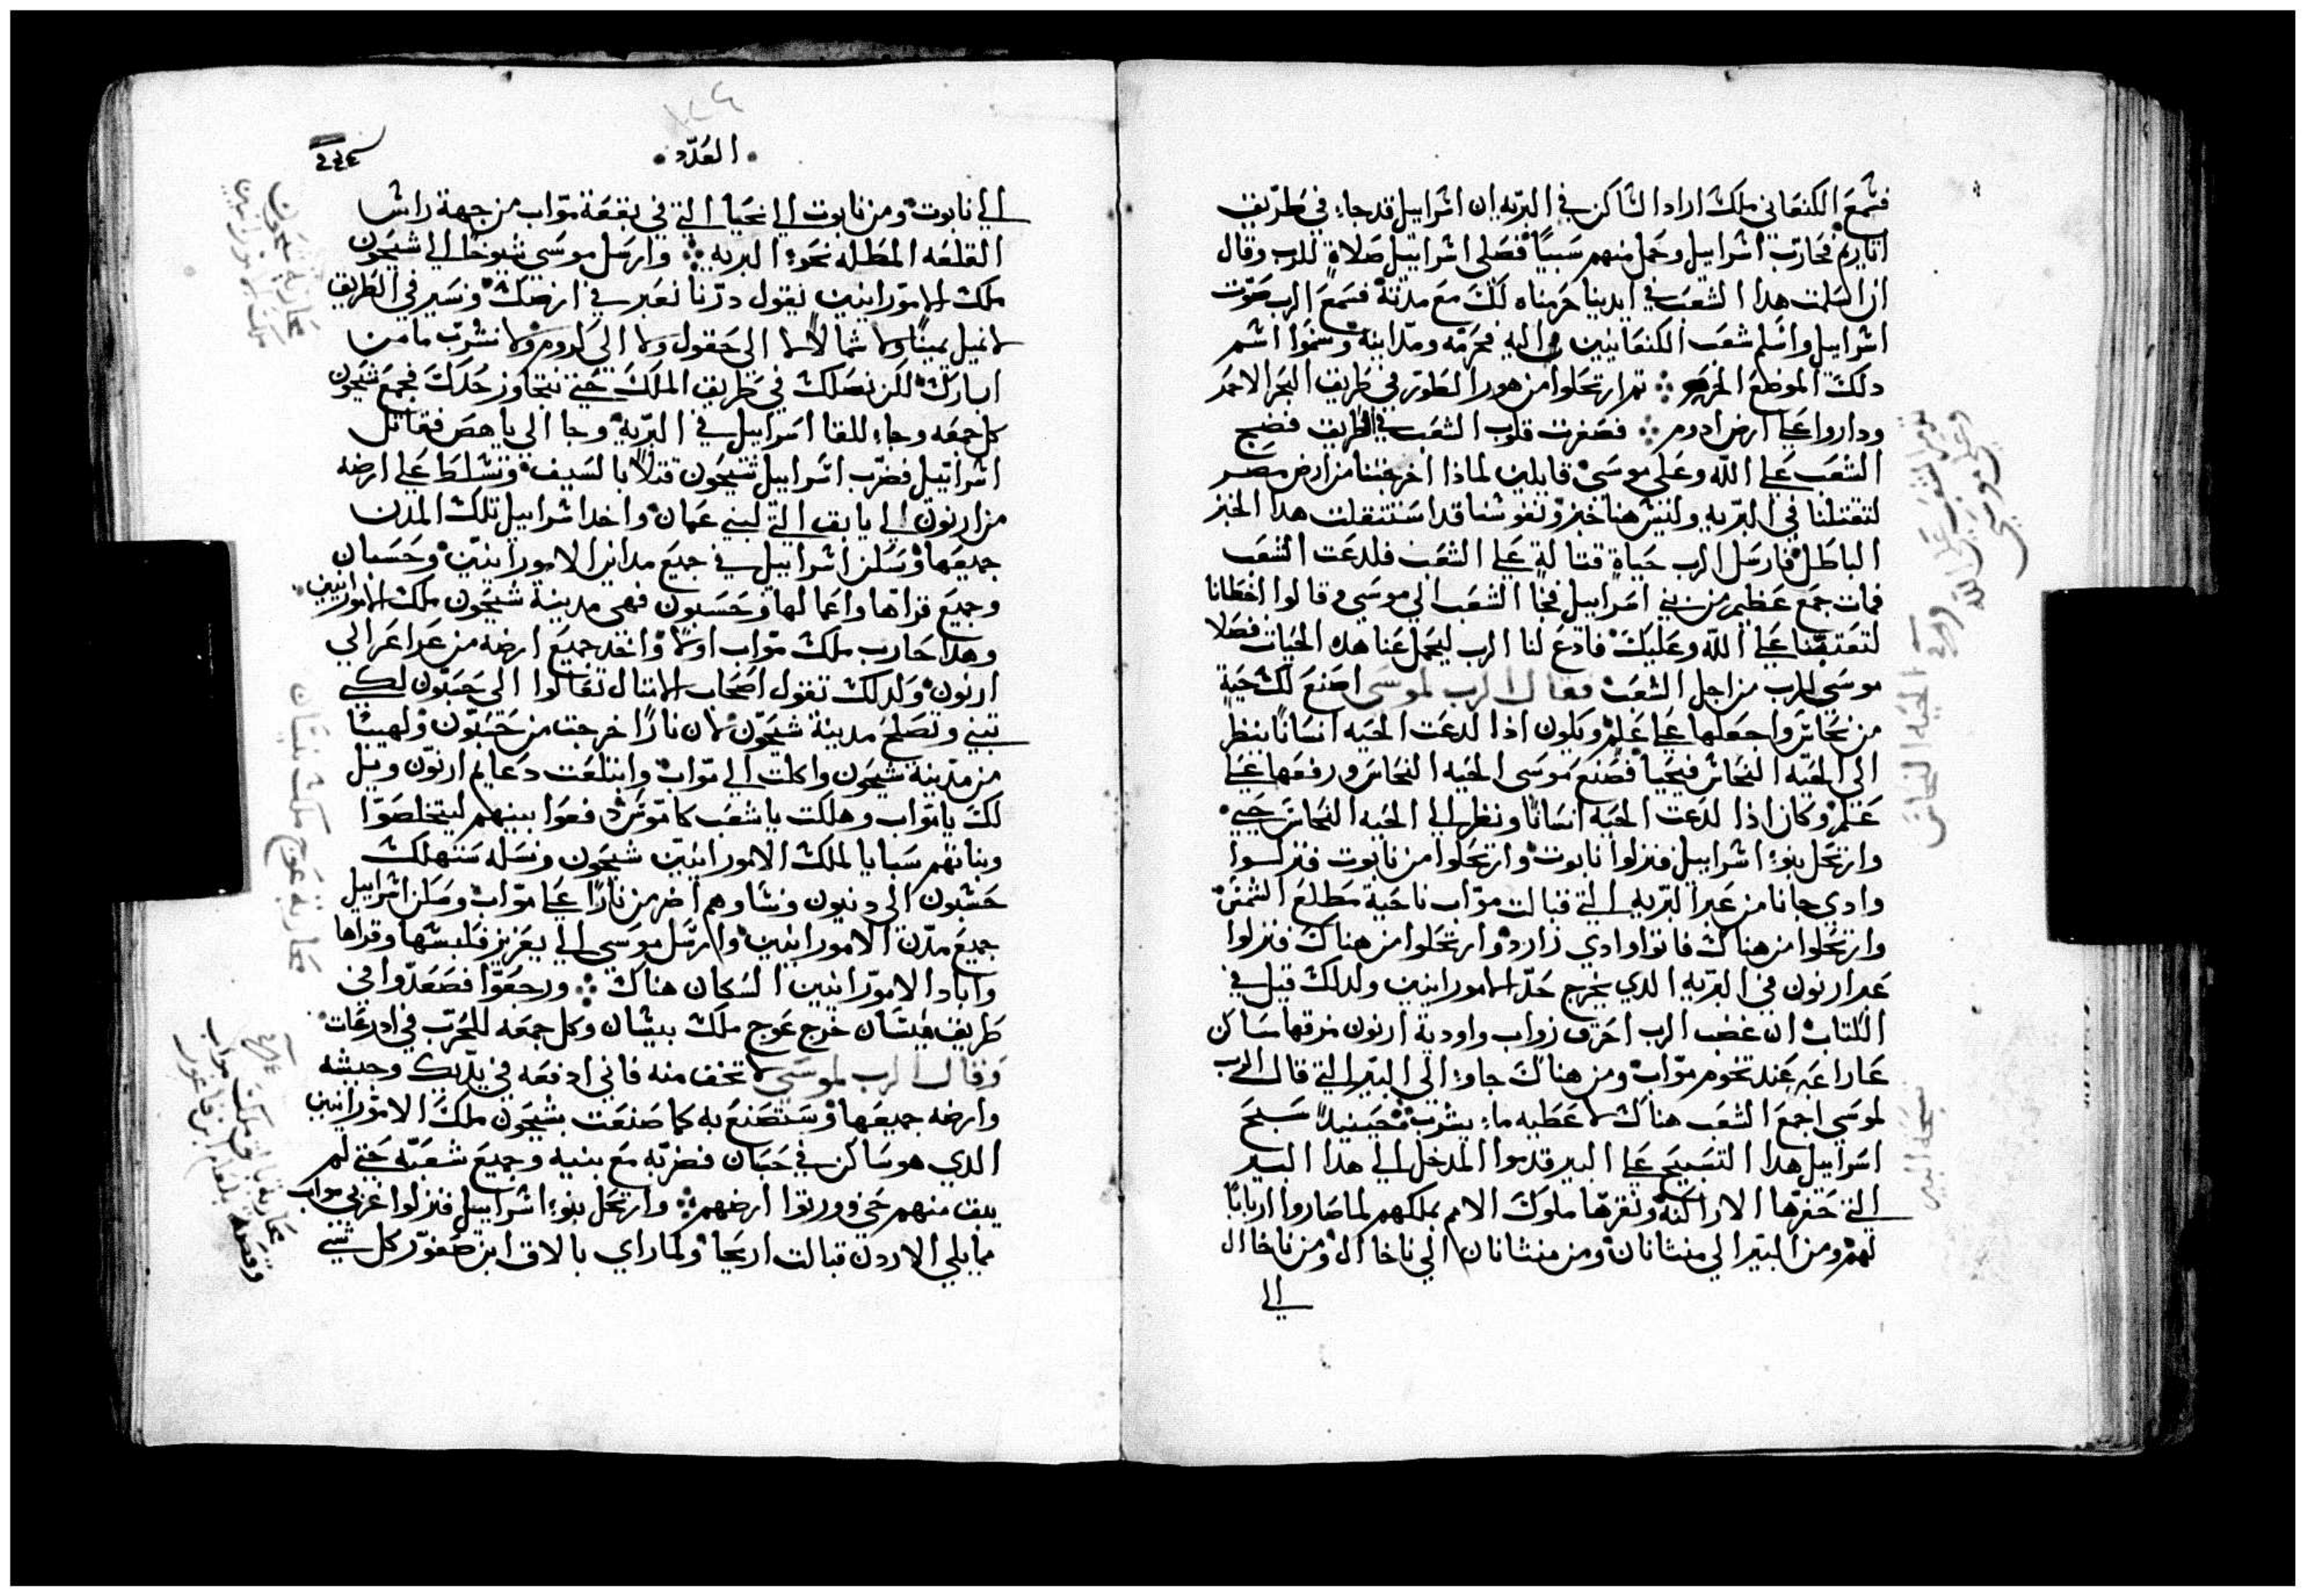 فسمع الكنعاني ملك اراد الساكن في البريه ان اسراييل قد جاء في طريق
اتاريم فحارب اسراييل وحمل منهم سبيًا فصلى اسراييل صلاة للرب وقال
ان اسلمت هدا الشعب في ايدينا حرمناه لك مع مدنه فسمع الرب صوت
اسراييل واسلم شعب الكنعانيين اليه فحرمه ومداينه وسموا اسم
دلك الموظع المحرم تم ارتحلوا من هور الطور في طريق البحر الاحمر
وداروا على ارض ادوم فصغرت قلوب الشعب في الطريق فضج
الشعب على الله وعلى موسى قايلين لمادا اخرجتنا من ارض مصر
لتقتلنا في البريه وليس هنا خبز ونفوسنا قد استتقلت هدا الخبز
الباطل فارسل الرب حياة قتالة على الشعب فلدعت الشعب
فمات جمع عظيم من بني اسراييل فجا الشعب الى موسى وقالوا اخطانا
لتعتبنا على الله وعليك فادع لنا الرب ليحمل عنا هده الحيات فصلا
موسى للرب من اجل الشعب فقال الرب لموسى اصنع لك حية
من نحاس واجعلها على علم ويكون ادا لدعت الحيه انسانا ينظر
الى الحيه النحاس فيحيا فصنع موسى الحيه النحاس ورفعها على
علم وكان ادا لدعت الحيه انسانًا ونظر الى الحيه النحاس حيي
وارتحل بنو اسراييل فنزلوا نابوت وارتحلوا من نابوت فنزلوا
وادي جانا من عبر البريه التي قبالت مواب ناحية مطلع الشمس
وارتحلوا من هناك فاتوا وادي زارد وارتحلوا من هناك فنزلوا
عبر ارنون في البريه الدي يخرج حد الامورانيين ولدلك قيل في
الكتاب ان غضب الرب احرق زواب واودية ارنون مزقها ساكن
عارا عند تخوم مواب ومن هناك جاو الى البير التي قال الرب
لموسى اجمع الشعب هناك لاعطيه ماء يشرب فحينيدًا سبح
اسراييل هدا التسبيح على البير قدموا المدخل الى هدا البير
التي حفرها الاراكنه ونقرها ملوك الامم بملكهم لما صاروا اربابًا
لهم ومن البير الى منتانان ومن منتانان الى ناخاال ومن ناخاال
الى
تقمقم الشعب على الله
وعلى موسى
الحيه النحاس
تسبحة البير
العدد
الى نابوت ومن نابوت الى نحيا التي في بقعة مواب من جهة راس
القلعه المطله نحو البريه وارسل موسى شيوخًا الى شيحون
ملك الامورانيين يقول درنا نعبر في ارضك ونسير في الطريق
لا نميل يمينًا ولا شمالًا لا الى حقول ولا الى كروم ولا نشرب ما من
ابيارك لكن نسلك في طريق الملك حتى نتجاوز حدك فجمع شيحون
كل جمعه وجاء للقا اسراييل في البريه وجا الى ياهص فقاتل
اسراييل فضرب اسراييل شيحون قتلًا بالسيف وتسلط على ارضه
من ارنون الى يابق التي لبني عمان واخد اسراييل تلك المدن
جميعها وسكن اسراييل في جميع مداين الامورانيين وحسبان
وجميع قراها واعمالها وحسبون فهى مدينة شيحون ملك الامورانيين
وهدا حارب ملك مواب اولا واخد جميع ارضه من عراعر الى
ارنون ولدلك تقول اصحاب الامتال تعالوا الى حسبون لكي
تبنى وتصلح مدينة شيحون لان نارًا خرجت من حسبون ولهيبًا
من مدينة شيحون واكلت الى مواب وابتلعت دعايم ارنون ويل
لك يا مواب وهلكت يا شعب كاموش دفعوا بينهم ليتخلصوا
وبناتهم سبايا لملك الامورانيين شيحون ونسله ستهلك
حسبون الى ديبون ونساوهم اضرمن نارًا على مواب وسكن اسراييل
جميع مدن الامورانيين وارسل موسى الى يعزيز فلبسها وقراها
واباد الامورانيين السكان هناك ورجعوا فصعدوا في
طريق بيسان خرج عوج ملك بيسان وكل جمعه للحرب في ادرعات
وقال الرب لموسى لا تخف منه فاني ادفعه في يديك وجيشه
وارضه جميعها وستصنع به كما صنعت بشيحون ملك الامورانيين
الدي هو ساكن في حسبان فضربه مع بنيه وجميع شعبه حتى لم
يبق منهم حي وورتوا ارضهم وارتحل بنو اسراييل فنزلوا غربي مواب
مما يلي الاردن قبالت اريحا ولما راى بالاق ابن صفور كل شي
محاربة شيحون
ملك الامورانيين
محاربة عوج ملك بيسان
محاربة بالاق ملك مواب
وقصة بلعام ابن فاعور